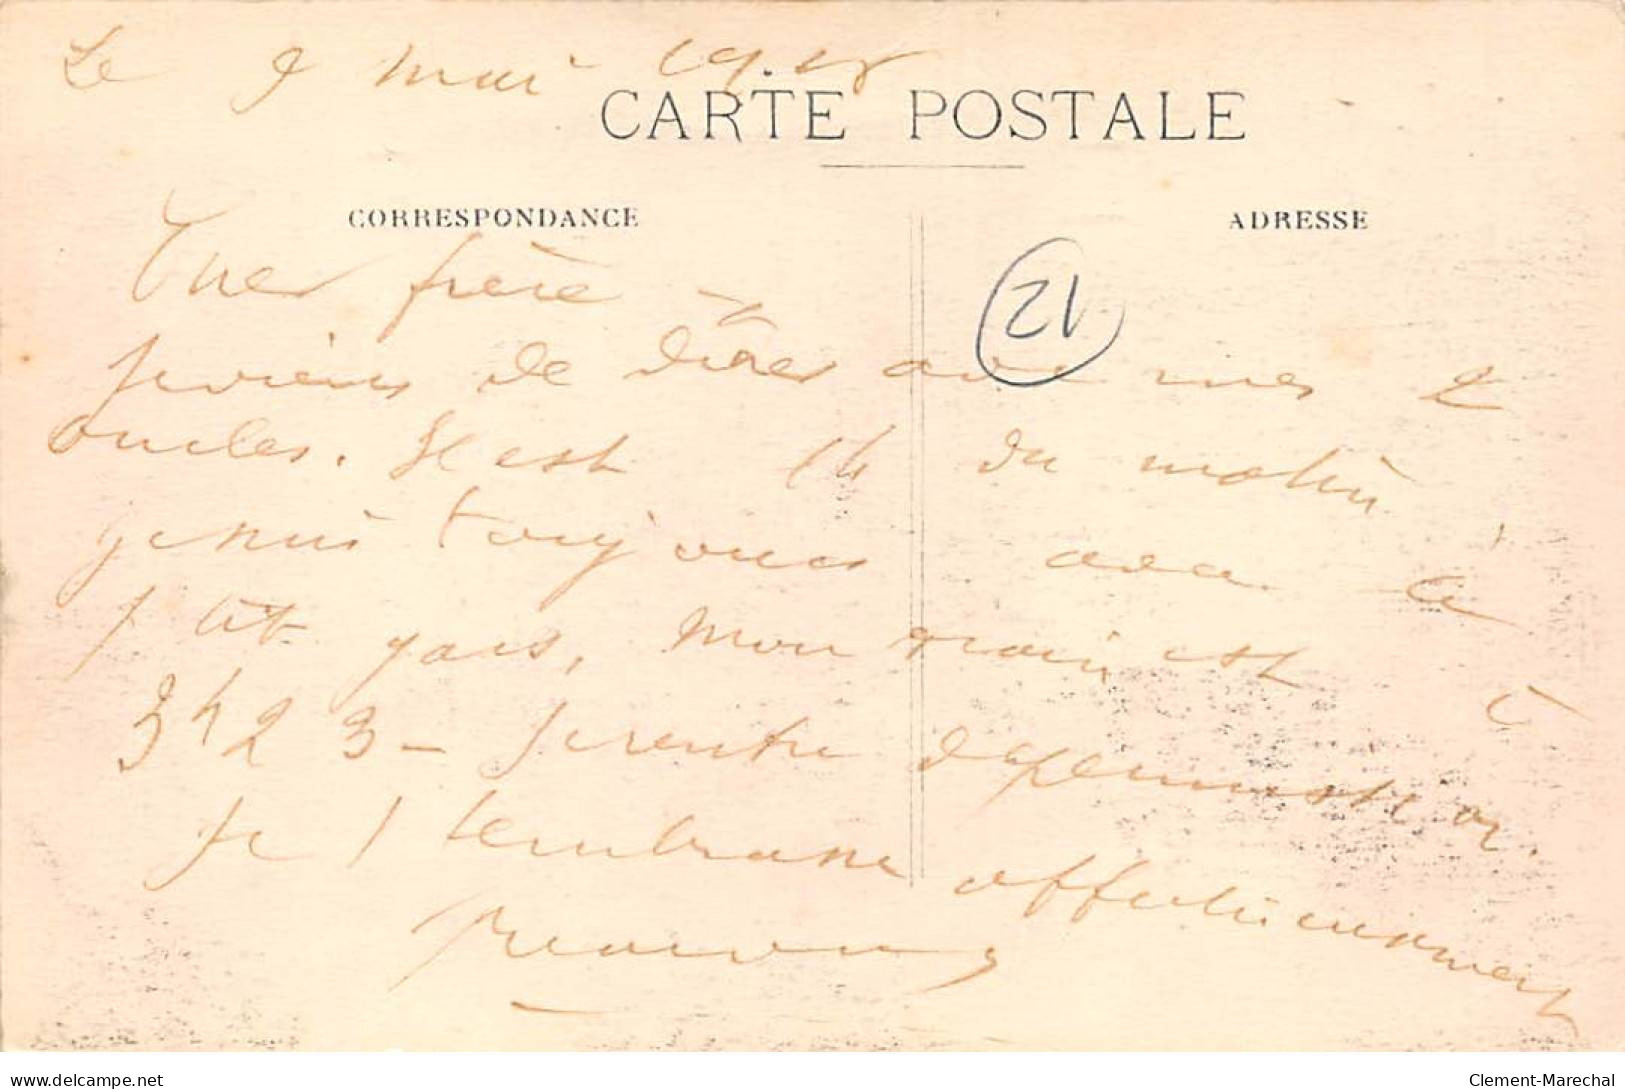 Le 9 mai
CARTE POSTALE
CORRESPONDANCE
ADRESSE
21
frère
Je viens de dîner avec mes 2
oncles. Il est 14 du matin
je suis toujours avec le
p'tit gars, Mon train est à
3h23 - Je rentre
Je t'embrasse affectueusement
delcampe.net
Clement-Marechal